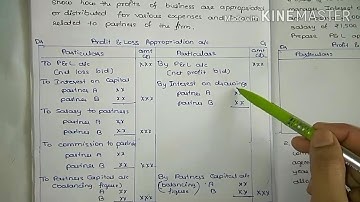 Show how the profits of business are appropriated
or distributed for various expenses and
related to partners of the firm.
KINEMASTER
Profit & Loss Appropriation a/c
Dr Cr
Particulars amt Particulars amt
To P&L a/c xxx By P&L a/c xxx
(net loss b/d) (net profit b/d)
To Interest on Capital By Interest on drawing
partner A xx partner A
partner B xx xxx partner B xx
To Salary to partners
partner A xx
partner B xx xxx
To commission to partner
partner A xx
partner B xx xxx
To Partners Capital a/c By Partners Capital a/c
(balancing figure) (balancing A xx
A xx figure) B xx xxx
B xx xxx
Particulars